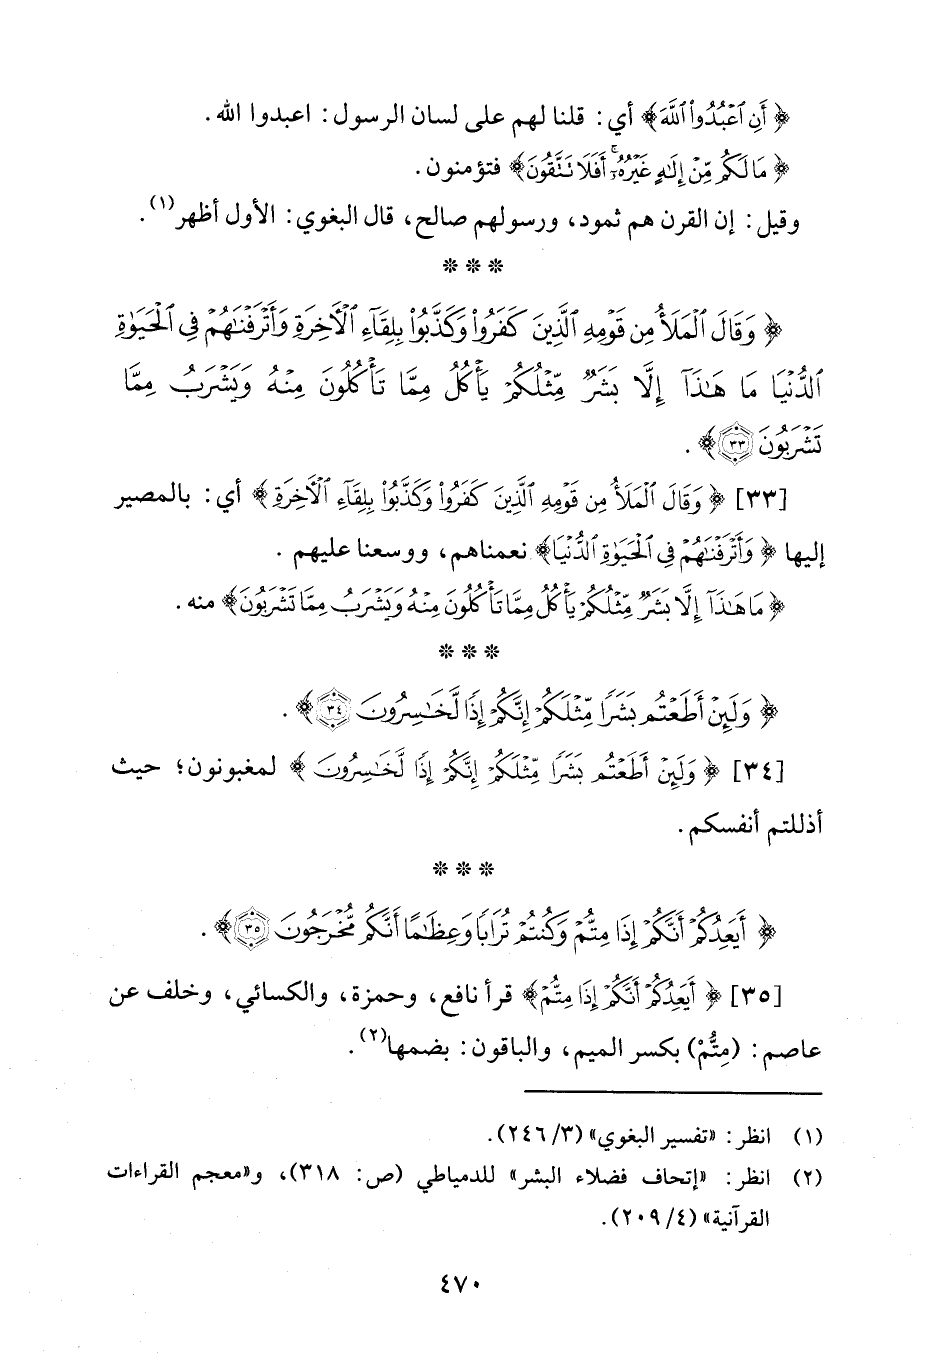 ﴿ أَنِ ٱعۡبُدُواْ ٱللَّهَ﴾ أي: قلنا لهم على لسان الرسول: اعبدوا الله.
﴿ مَا لَكُم مِّنۡ إِلَٰهٍ غَيۡرُهُۥٓۚ أَفَلَا تَتَّقُونَ﴾ فتؤمنون.
وقيل: إن القرن هم ثمود، ورسولهم صالح، قال البغوي: الأول أظهر(١).
* * *
﴿ وَقَالَ ٱلۡمَلَأُ مِن قَوۡمِهِ ٱلَّذِينَ كَفَرُواْ وَكَذَّبُواْ بِلِقَآءِ ٱلۡأٓخِرَةِ وَأَتۡرَفۡنَٰهُمۡ فِي ٱلۡحَيَوٰةِ
ٱلدُّنۡيَا مَا هَٰذَآ إِلَّا بَشَرٞ مِّثۡلُكُمۡ يَأۡكُلُ مِمَّا تَأۡكُلُونَ مِنۡهُ وَيَشۡرَبُ مِمَّا
تَشۡرَبُونَ ٣٣﴾.
[٣٣] ﴿ وَقَالَ ٱلۡمَلَأُ مِن قَوۡمِهِ ٱلَّذِينَ كَفَرُواْ وَكَذَّبُواْ بِلِقَآءِ ٱلۡأٓخِرَةِ ﴾ أي: بالمصير
إليها ﴿ وَأَتۡرَفۡنَٰهُمۡ فِي ٱلۡحَيَوٰةِ ٱلدُّنۡيَا﴾ نعمناهم، ووسعنا عليهم.
﴿ مَا هَٰذَآ إِلَّا بَشَرٞ مِّثۡلُكُمۡ يَأۡكُلُ مِمَّا تَأۡكُلُونَ مِنۡهُ وَيَشۡرَبُ مِمَّا تَشۡرَبُونَ﴾ منه.
* * *
﴿ وَلَئِنۡ أَطَعۡتُم بَشَرٗا مِّثۡلَكُمۡ إِنَّكُمۡ إِذٗا لَّخَٰسِرُونَ ٣٤﴾.
[٣٤] ﴿ وَلَئِنۡ أَطَعۡتُم بَشَرٗا مِّثۡلَكُمۡ إِنَّكُمۡ إِذٗا لَّخَٰسِرُونَ ﴾ لمغبونون؛ حيث
أذللتم أنفسكم.
* * *
﴿ أَيَعِدُكُمۡ أَنَّكُمۡ إِذَا مِتُّمۡ وَكُنتُمۡ تُرَابٗا وَعِظَٰمًا أَنَّكُم مُّخۡرَجُونَ ٣٥﴾.
[٣٥] ﴿ أَيَعِدُكُمۡ أَنَّكُمۡ إِذَا مِتُّمۡ﴾ قرأ نافع، وحمزة، والكسائي، وخلف عن
عاصم: (مِتُّمْ) بكسر الميم، والباقون: بضمها(٢).
(١) انظر: «تفسير البغوي» (٣/ ٢٤٦).
(٢) انظر: «إتحاف فضلاء البشر» للدمياطي (ص: ٣١٨)، و«معجم القراءات
القرآنية» (٤/ ٢٠٩).
٤٧٠